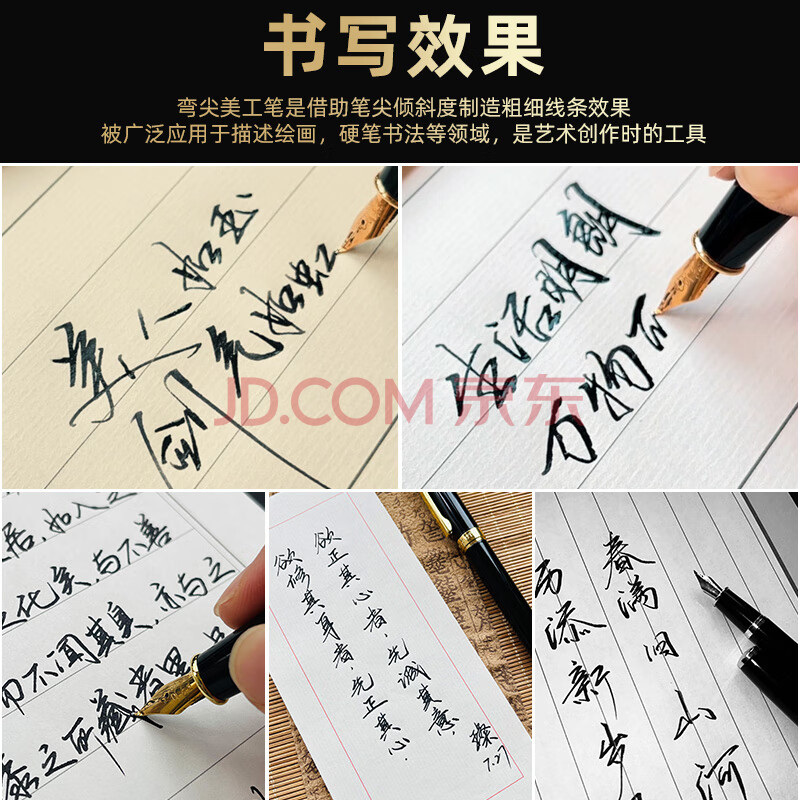 书写效果
弯尖美工笔是借助笔尖倾斜度制造粗细线条效果
被广泛应用于描述绘画，硬笔书法等领域，是艺术创作时的工具
美人如玉
剑气如虹
生活明朗
万物可
JD.COM 京东
居，如入之
之化矣，与不善
而不闻其臭，亦与之
之所藏者黑
欲正其心者，先诚其意。
欲修其身者，先正其心。
臻
7.27
春满旧山河
历添新岁